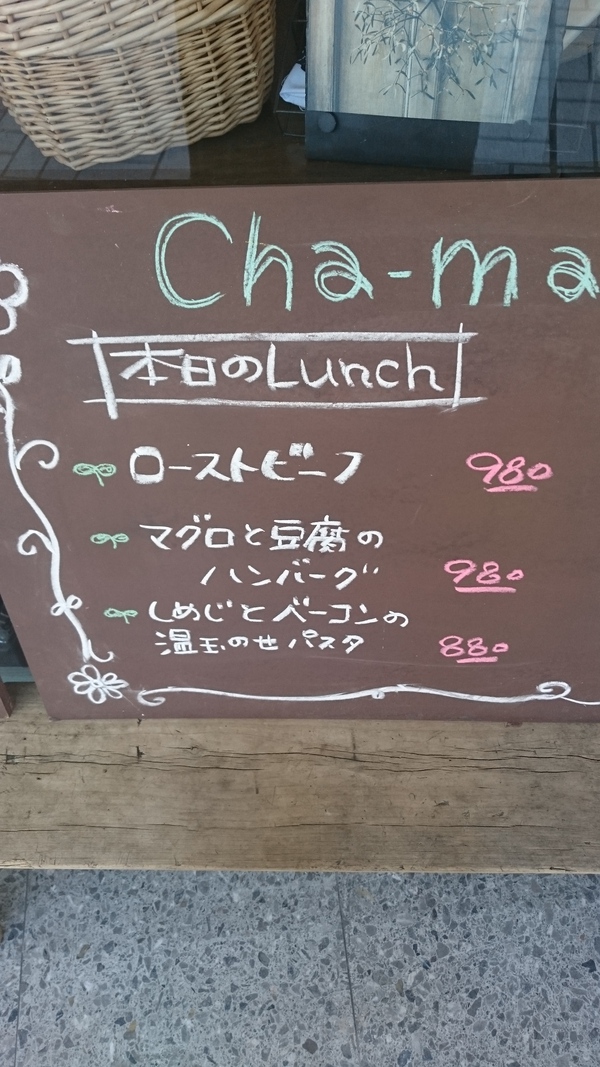 Cha-ma
本日のLunch
ローストビーフ 980
マグロと豆腐の
ハンバーグ 980
しめじとベーコンの
温玉のせパスタ 880